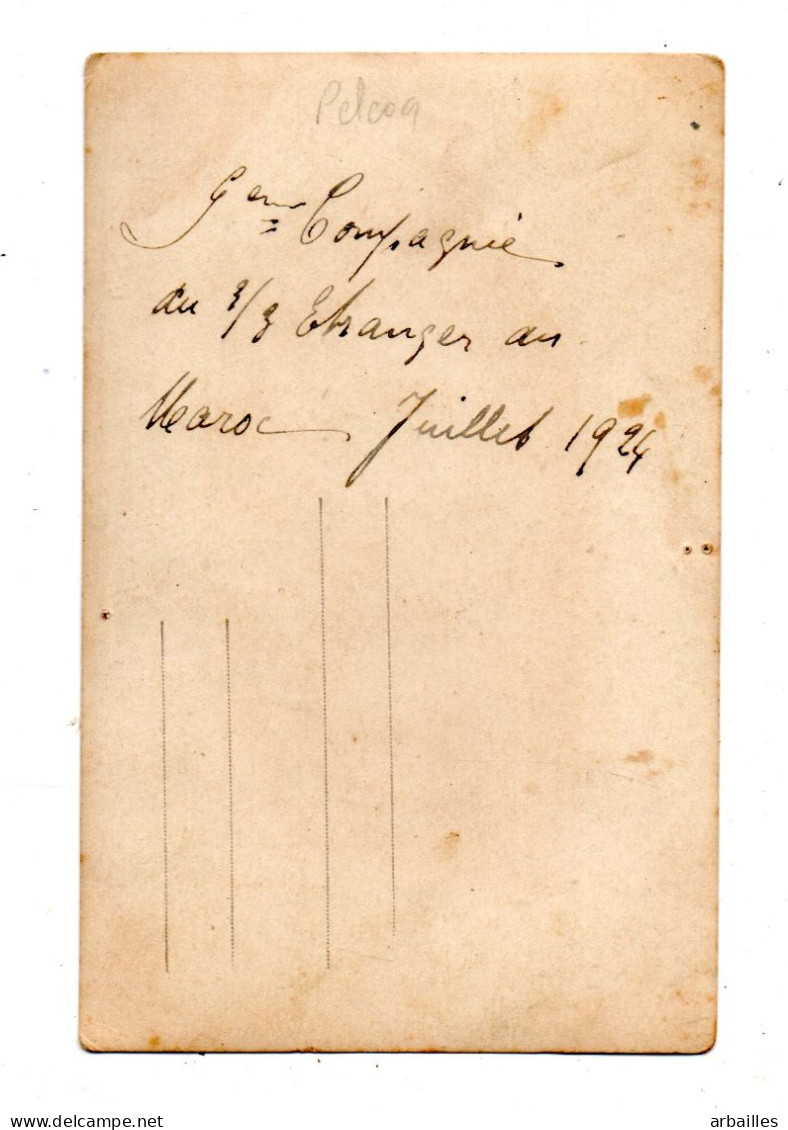 9eme Compagnie
du 3/3 Etranger au
Maroc Juillet 1924
delcampe.net
arbailles